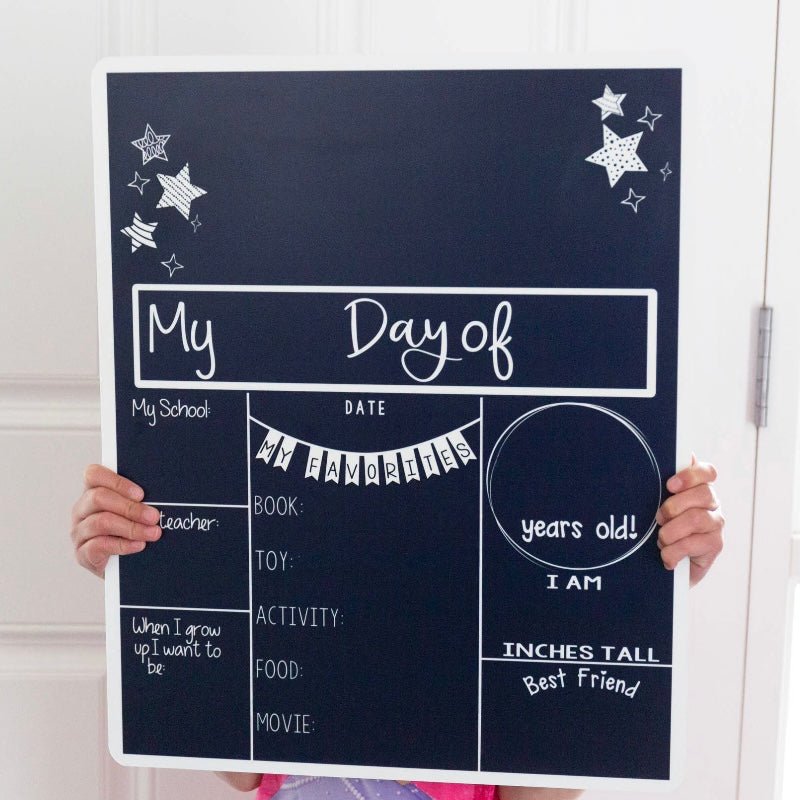 My Day of
My School:
teacher:
When I grow
up I want to
be:
DATE
MY FAVORITES
BOOK:
TOY:
ACTIVITY:
FOOD:
MOVIE:
years old!
I AM
INCHES TALL
Best Friend